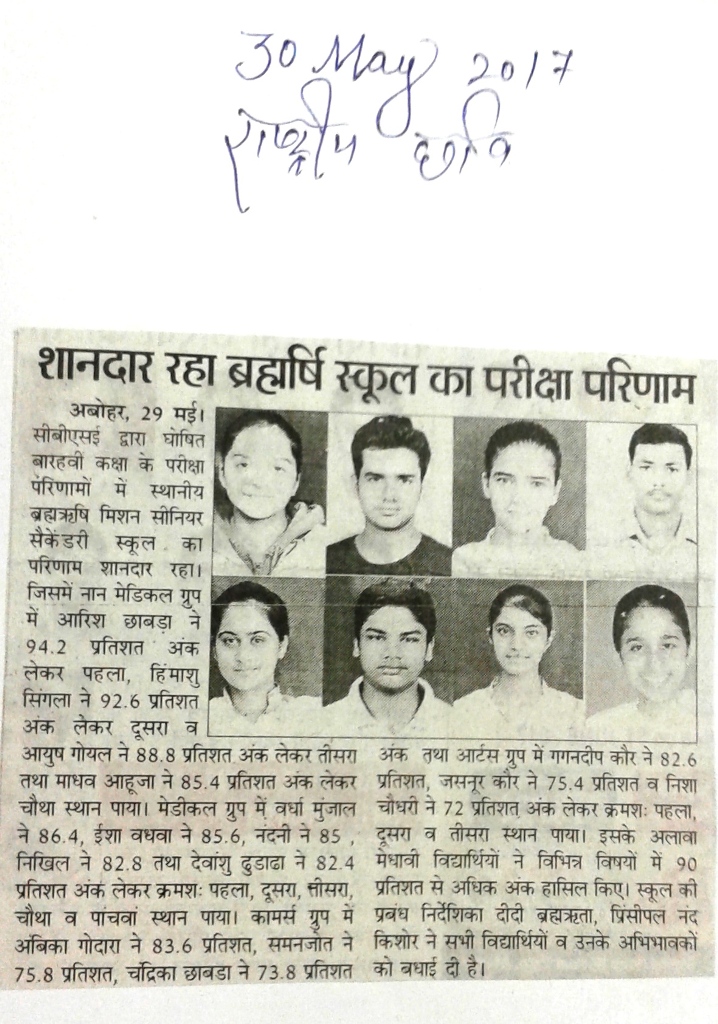 30 May 2017
राष्ट्रीय छवि
शानदार रहा ब्रह्मर्षि स्कूल का परीक्षा परिणाम
अबोहर, 29 मई।
सीबीएसई द्वारा घोषित
बारहवी कक्षा के परीक्षा
परिणामों में स्थानीय
ब्रह्मऋषि मिशन सीनियर
सैकेंडरी स्कूल का
परिणाम शानदार रहा।
जिसमें नान मेडिकल ग्रुप
में आरिश छाबड़ा ने
94.2 प्रतिशत अंक
लेकर पहला, हिंमाशु
सिंगला ने 92.6 प्रतिशत
अंक लेकर दूसरा व
आयुष गोयल ने 88.8 प्रतिशत अंक लेकर तीसरा
तथा माधव आहूजा ने 85.4 प्रतिशत अंक लेकर
चौथा स्थान पाया। मेडीकल ग्रुप में वर्धा मुंजाल
ने 86.4, ईशा वधवा ने 85.6, नंदनी ने 85 ,
निखिल ने 82.8 तथा देवांशु दुडाढा ने 82.4
प्रतिशत अंक लेकर क्रमशः पहला, दूसरा, तीसरा,
चौथा व पांचवां स्थान पाया। कामर्स ग्रुप में
अंबिका गोदारा ने 83.6 प्रतिशत, समनजोत ने
75.8 प्रतिशत, चंद्रिका छाबडा ने 73.8 प्रतिशत
अंक तथा आर्टस ग्रुप में गगनदीप कौर ने 82.6
प्रतिशत, जसनूर कौर ने 75.4 प्रतिशत व निशा
चौधरी ने 72 प्रतिशत अंक लेकर क्रमशः पहला,
दूसरा व तीसरा स्थान पाया। इसके अलावा
मेधावी विद्यार्थियों ने विभिन्न विषयों में 90
प्रतिशत से अधिक अंक हासिल किए। स्कूल की
प्रबंध निर्देशिका दीदी ब्रह्मऋता, प्रिंसीपल नंद
किशोर ने सभी विद्यार्थियों व उनके अभिभावकों
को बधाई दी है।